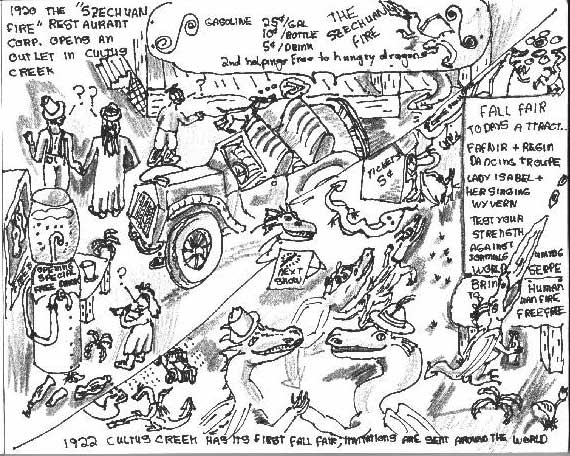 1920 THE "SZECHUAN
FIRE" RESTAURANT
CORP. OPENS AN
OUTLET IN CULTUS
CREEK
GASOLINE 25¢/GAL
10¢/BOTTLE
5¢/DRINK
THE
SZECHUAN
FIRE
2nd helpings free to hungry dragons
? ?
?
?
TICKETS
5¢
NEXT
SHOW
OPENING
SPECIAL
FREE DRINK
FALL FAIR
TODAYS ATTRACT..
FAFNIR + REGIN
DANCING TROUPE
LADY ISABEL +
HER SINGING
WYVERN
TEST YOUR
STRENGTH
AGAINST
WORLD
SERPE
BRIN
HUMAN
FIRE
1922 CULTUS CREEK HAS ITS FIRST FALL FAIR; INVITATIONS ARE SENT AROUND THE WORLD